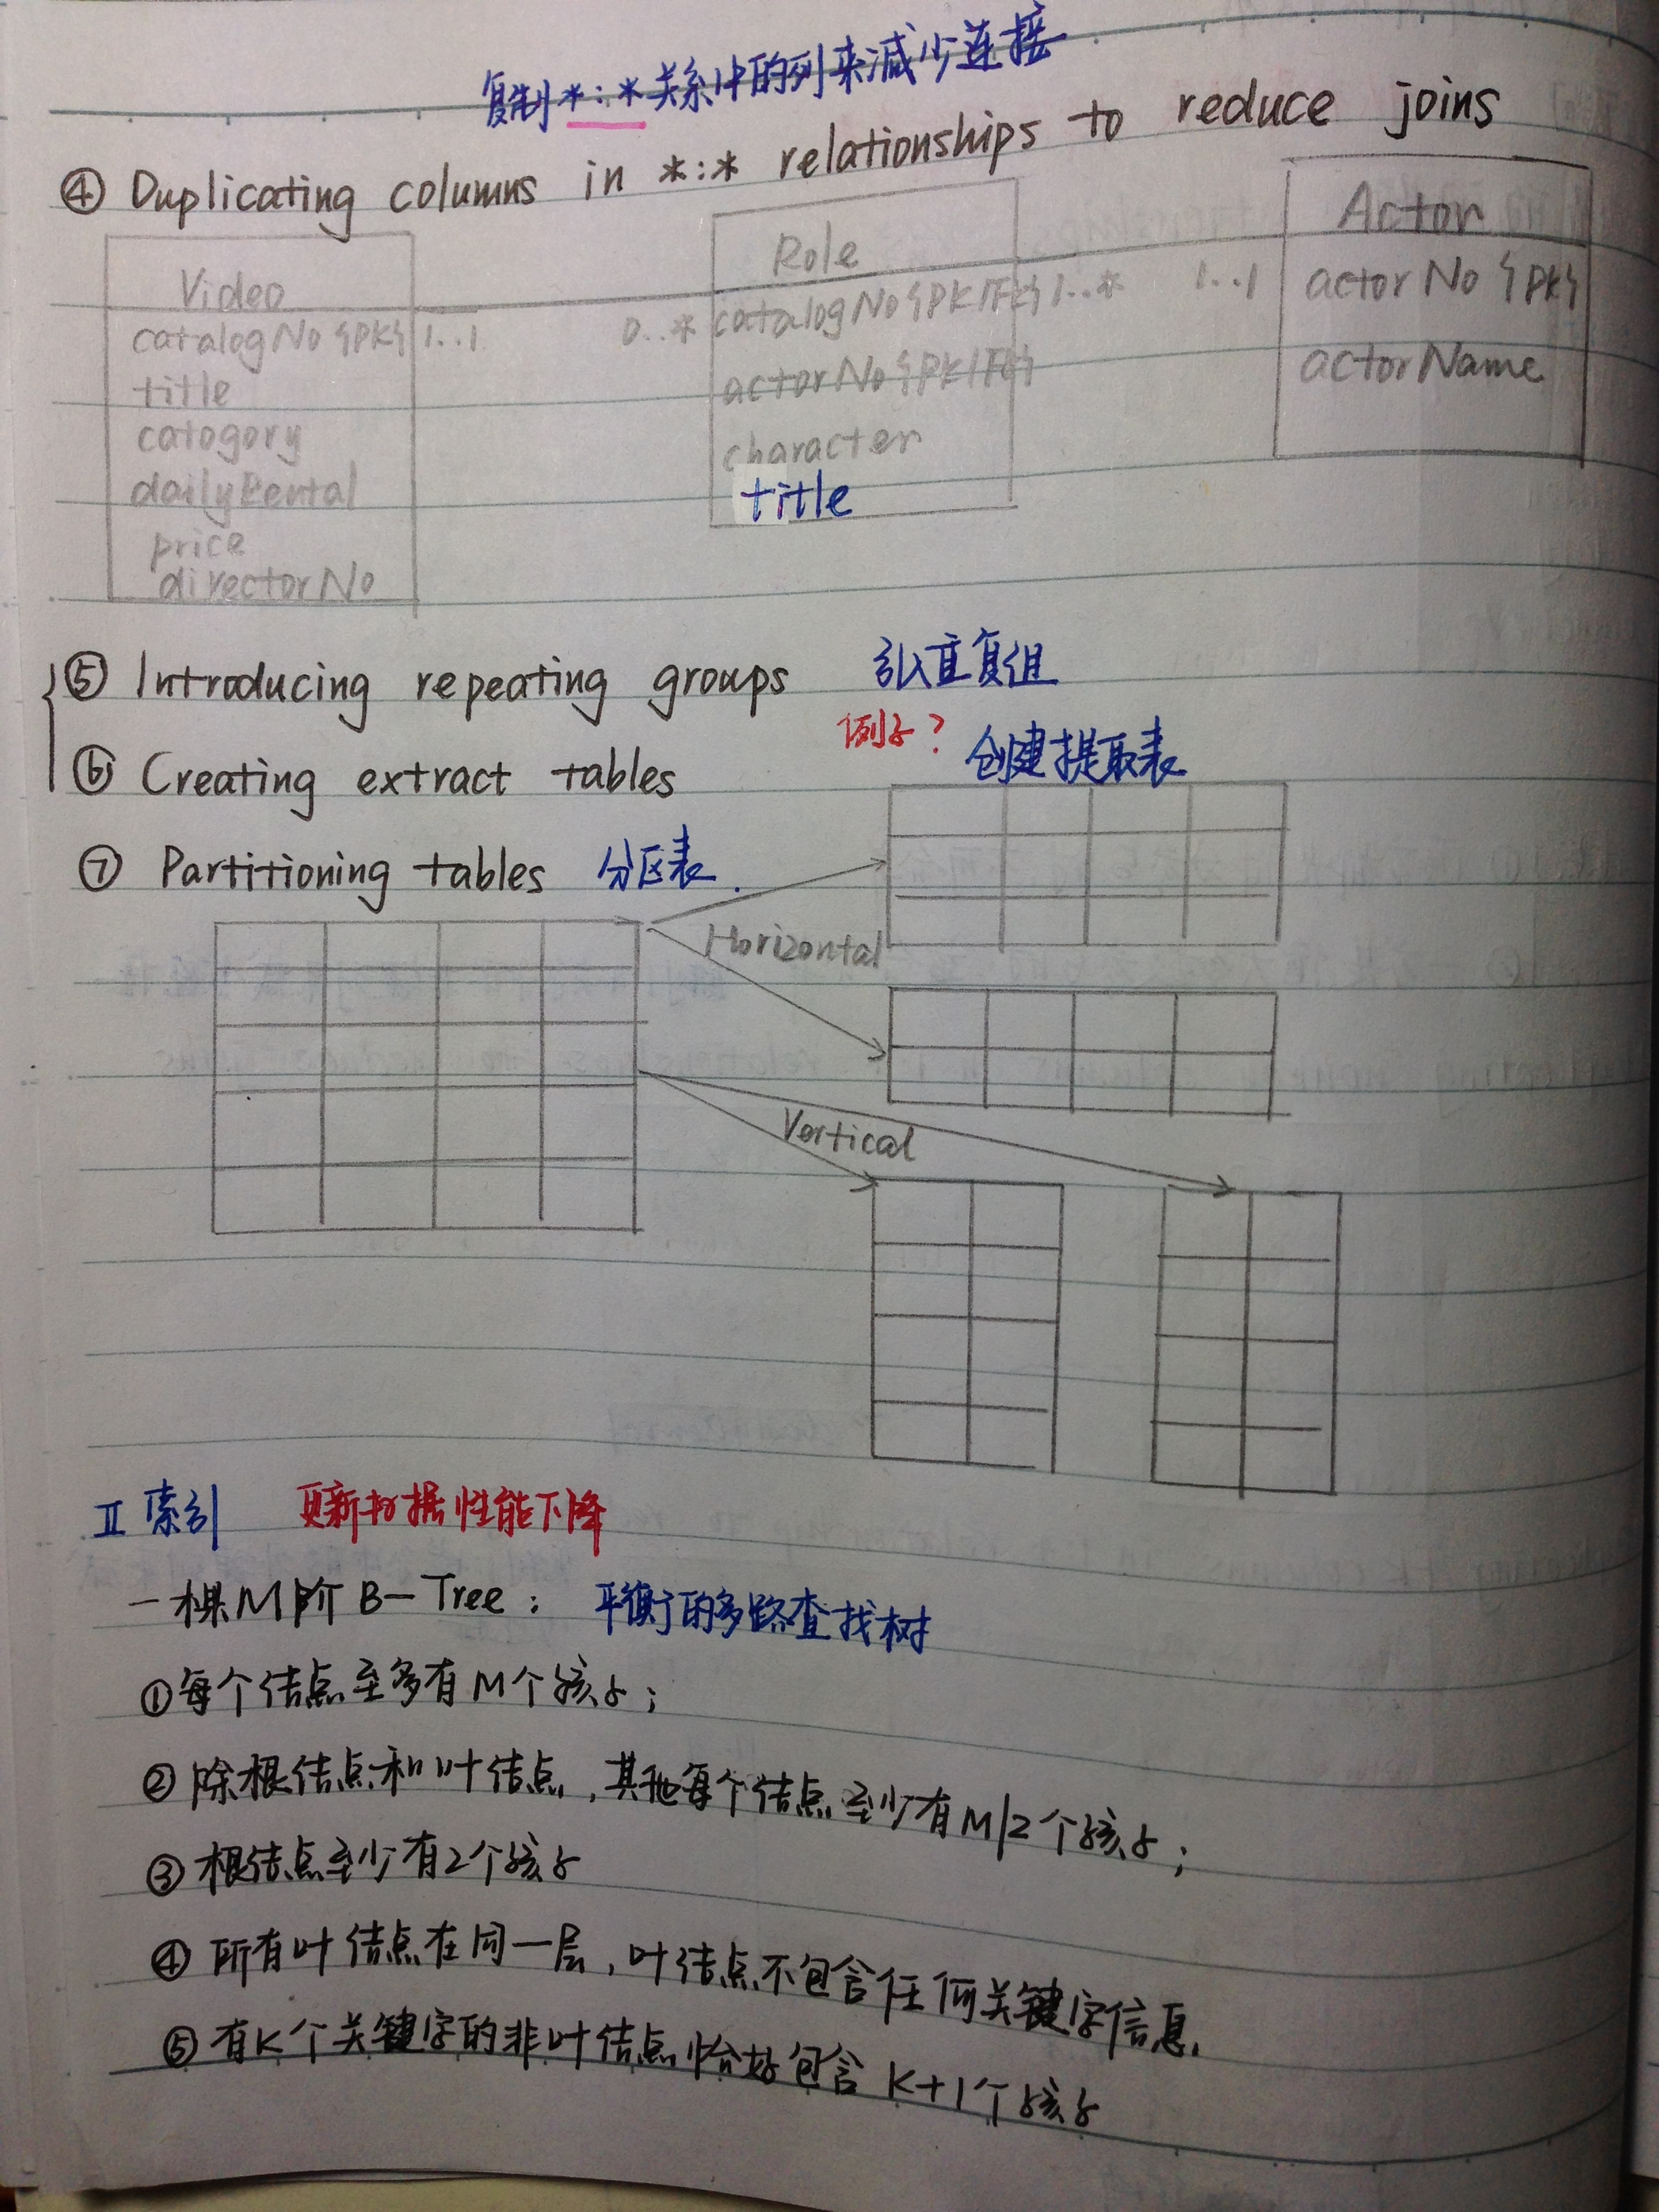 复制*:*关系中的列来减少连接
④ Duplicating columns in *:* relationships to reduce joins
Video
catalogNo {PK} 1..1
title
catogory
dailyRental
price
directorNo
Role
0..* catalogNo {PK/FK} 1..*
actorNo {PK/FK}
character
title
Actor
1..1 actorNo {PK}
actorName
⑤ Introducing repeating groups 引入重复组
例子?
⑥ Creating extract tables 创建提取表
⑦ Partitioning tables 分区表.
Horizontal
Vertical
Ⅱ 索引 更新数据性能下降
一棵M阶 B-Tree: 平衡的多路查找树
①每个结点至多有M个孩子;
②除根结点和叶结点,其他每个结点至少有M/2个孩子;
③根结点至少有2个孩子
④所有叶结点在同一层,叶结点不包含任何关键字信息.
⑤有K个关键字的非叶结点恰好包含 K+1个孩子